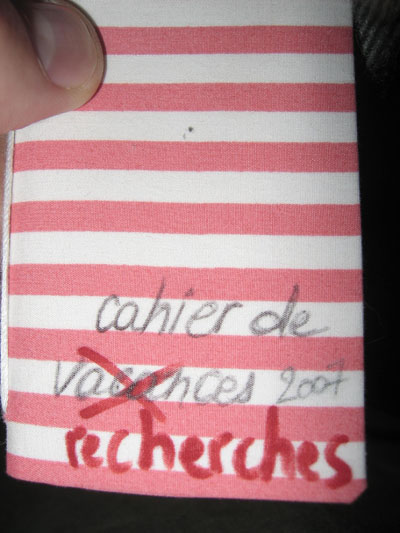 cahier de
vacances 2007
recherches